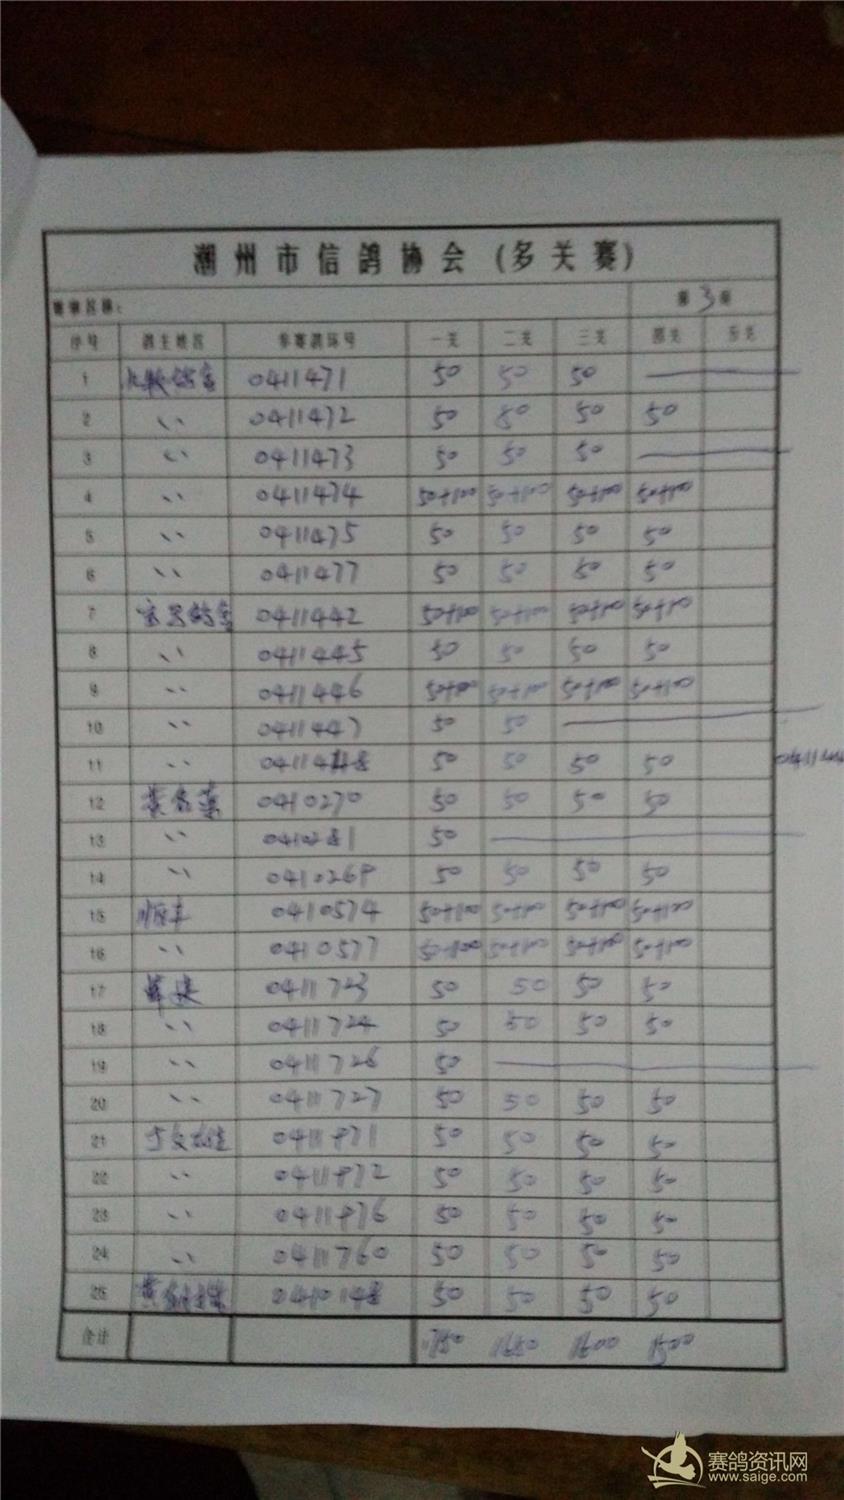 潮州市信鸽协会(多关赛)
第3页
序号 鸽主姓名 参赛鸽环号 一关 二关 三关 四关 五关
1 0411471 50 50 50
2 〃 0411472 50 80 50 50
3 〃 0411473 50 50 50
4 〃 0411474 50+100 50+100 50+100 50+100
5 〃 0411475 50 50 50 50
6 〃 0411477 50 50 50 50
7 0411442 50+100 50+100 50+100 50+100
8 〃 0411445 50 50 50 50
9 〃 0411446 50+100 50+100 50+100 50+100
10 〃 0411447 50 50
11 〃 50 50 50 50
12 0410270 50 50 50 50
13 〃 0410281 50
14 〃 0410269 50 50 50 50
15 顺丰 0410574 50+100 50+100 50+100 50+100
16 〃 0410577 50+100 50+100 50+100 50+100
17 0411723 50 50 50 50
18 〃 0411724 50 50 50 50
19 〃 0411726 50
20 〃 0411727 50 50 50 50
21 0411971 50 50 50 50
22 〃 0411972 50 50 50 50
23 〃 0411976 50 50 50 50
24 〃 0411760 50 50 50 50
25 0410148 50 50 50 50
合计 1750 1650 1600 1500
赛鸽资讯网
www.saige.com